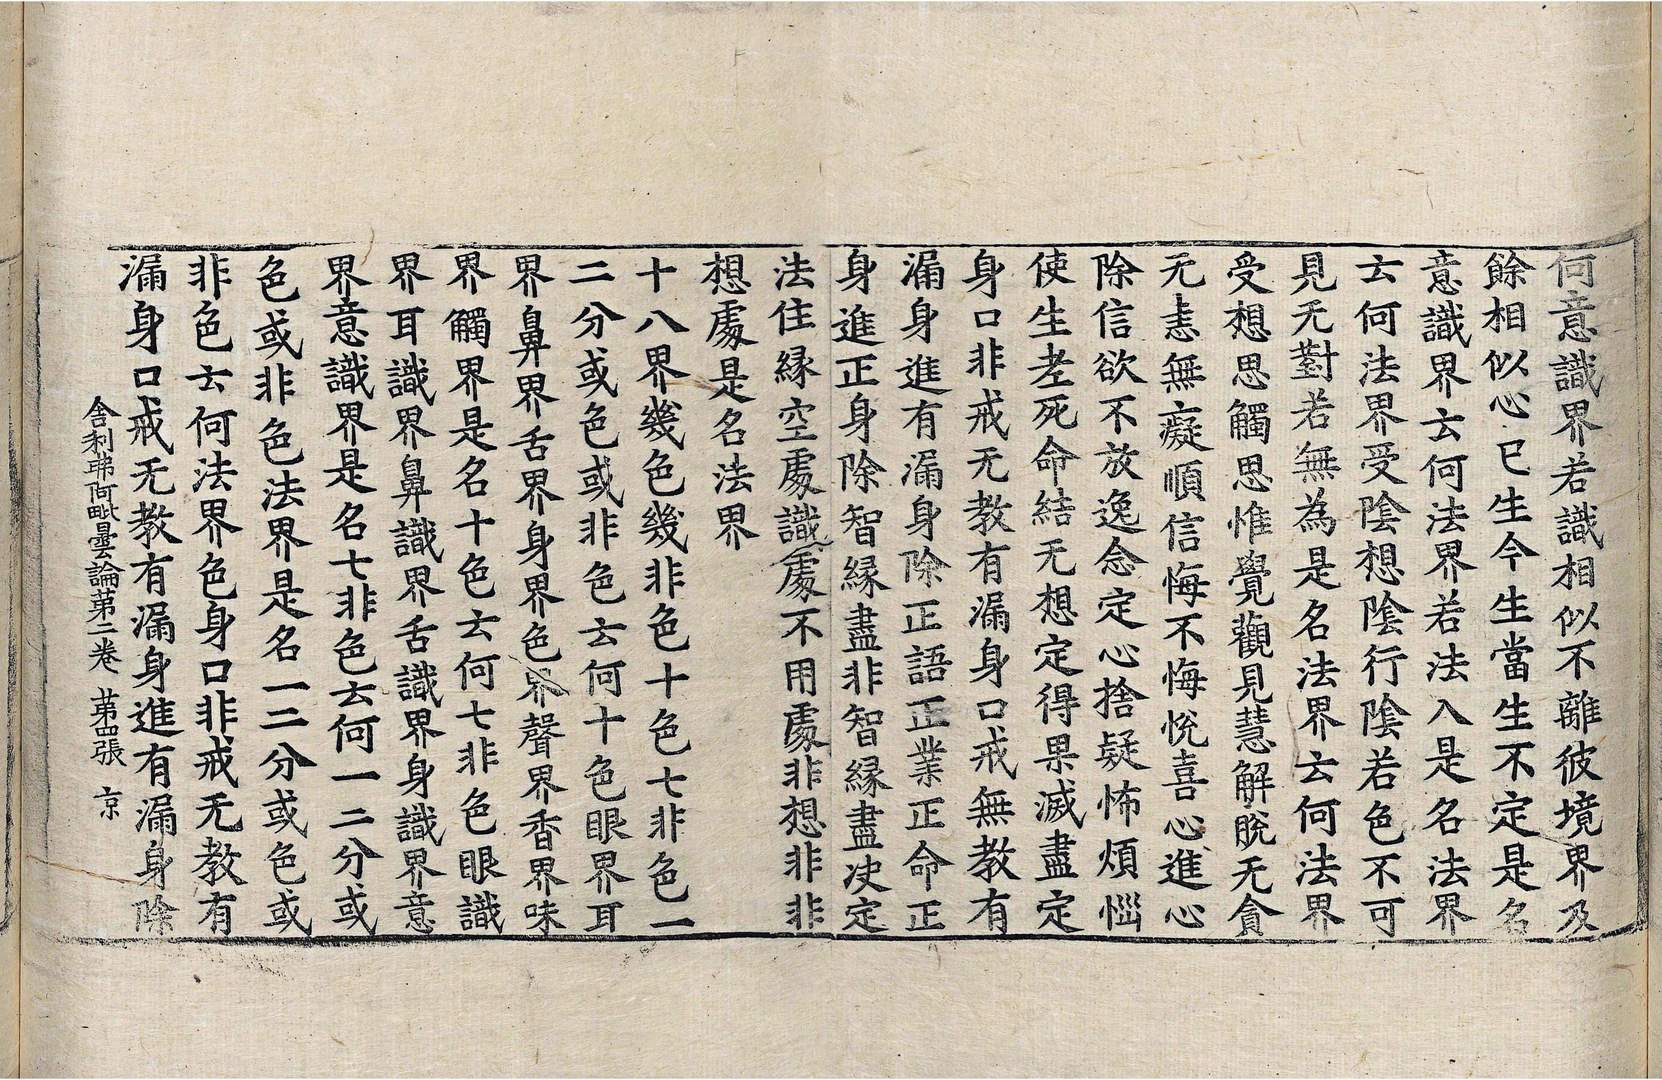 何意識界若識相似不離彼境界及
餘相似心已生今生當生不定是名
意識界云何法界若法入是名法界
云何法界受陰想陰行陰若色不可
見无對若無為是名法界云何法界
受想思觸思惟覺觀見慧解脫无貪
无恚無癡順信悔不悔恱喜心進心
除信欲不放逸念定心捨疑怖煩惱
使生老死命結无想定得果滅盡定
身口非戒无教有漏身口戒無教有
漏身進有漏身除正語正業正命正
身進正身除智緣盡非智緣盡决定
法住緣空處識處不用處非想非非
想處是名法界
十八界幾色幾非色十色七非色一
二分或色或非色云何十色眼界耳
界鼻界舌界身界色界聲界香界味
界觸界是名十色云何七非色眼識
界耳識界鼻識界舌識界身識界意
界意識界是名七非色云何一二分或
色或非色法界是名一二分或色或
非色云何法界色身口非戒无教有
漏身口戒无教有漏身進有漏身除
舍利弗阿毗曇論第二卷 第四張 京